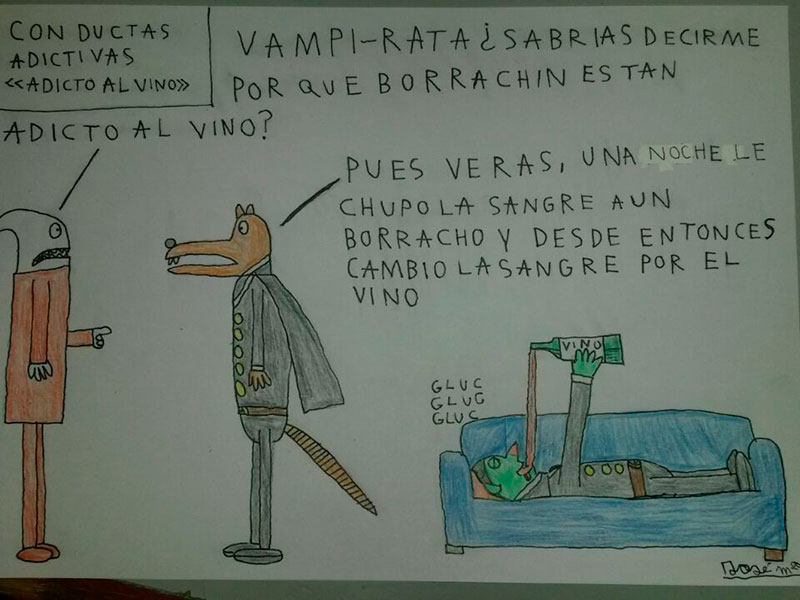 CONDUCTAS
ADICTIVAS
«ADICTO AL VINO»
VAMPI-RATA ¿SABRIAS DECIRME
POR QUE BORRACHIN ES TAN
ADICTO AL VINO?
PUES VERAS, UNA NOCHE LE
CHUPO LA SANGRE A UN
BORRACHO Y DESDE ENTONCES
CAMBIO LA SANGRE POR EL
VINO
VINO
GLUC
GLUG
GLUC
José Mª